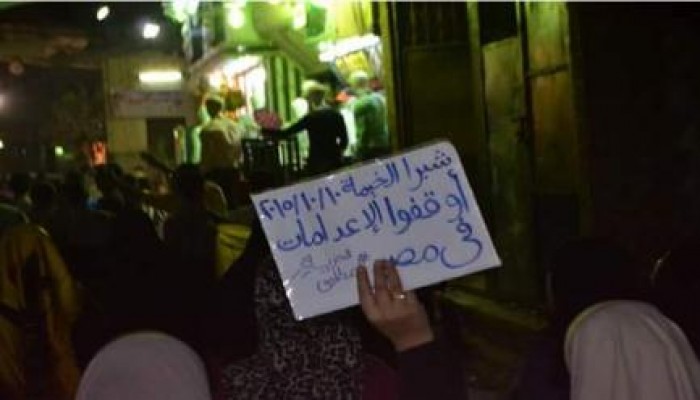 شبرا الخيمة ٢٠١٥/١٠/١٠
أوقفوا الإعدامات
في مصر